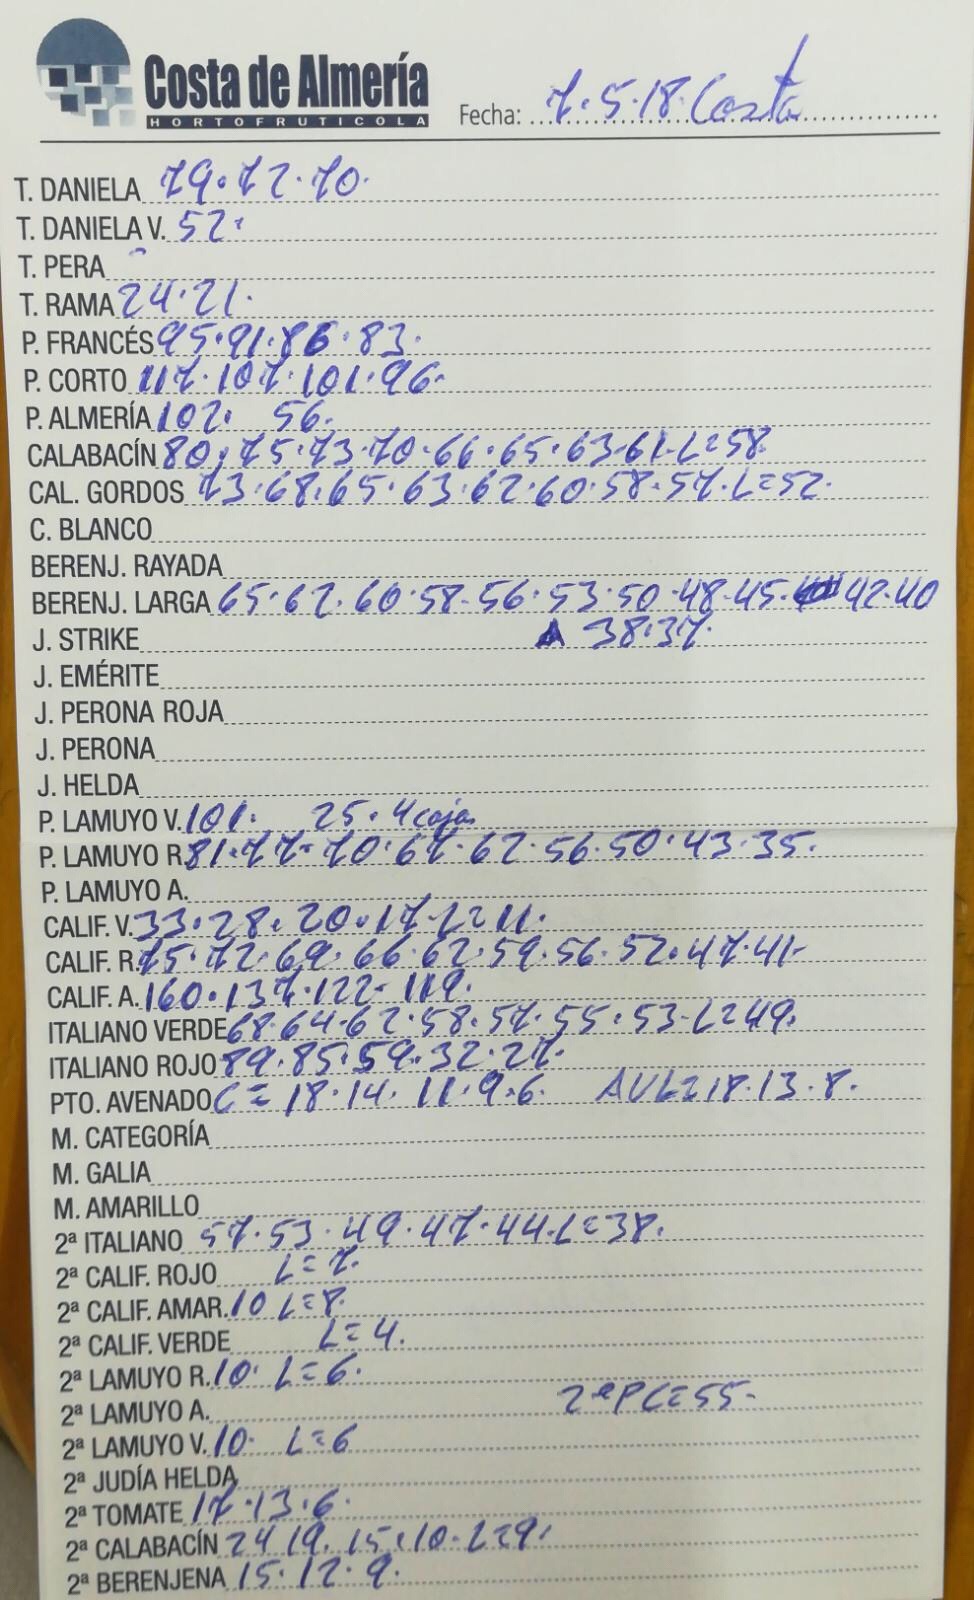 Costa de Almería
HORTOFRUTICOLA
Fecha: 7.5.18. Costa
T. DANIELA 79.72.70.
T. DANIELA V. 52.
T. PERA
T. RAMA 24.21.
P. FRANCÉS 95.91.86.83.
P. CORTO 117.107.101.96.
P. ALMERÍA 102. 56.
CALABACÍN 80.75.73.70.66.65.63.61.L=58.
CAL. GORDOS 73.68.65.63.62.60.58.57.L=52.
C. BLANCO
BERENJ. RAYADA
BERENJ. LARGA 65.62.60.58.56.53.50.48.45. 42.40
J. STRIKE 38.37.
J. EMÉRITE
J. PERONA ROJA
J. PERONA
J. HELDA
P. LAMUYO V. 101. 25.4 cajas
P. LAMUYO R. 81.77.70.67.62.56.50.43.35.
P. LAMUYO A.
CALIF. V. 33.28.20.17.L=11.
CALIF. R. 75.72.69.66.62.59.56.52.47.41.
CALIF. A. 160.137.122.119.
ITALIANO VERDE 68.64.62.58.57.55.53.L=49.
ITALIANO ROJO 89.85.59.32.27.
PTO. AVENADO C=18.14.11.9.6. AVL=18.13.8.
M. CATEGORÍA
M. GALIA
M. AMARILLO
2ª ITALIANO 57.53.49.47.44.L=38.
2ª CALIF. ROJO L=7.
2ª CALIF. AMAR. 10 L=8.
2ª CALIF. VERDE L=4.
2ª LAMUYO R. 10. L=6.
2ª LAMUYO A. 2ªPC=55.
2ª LAMUYO V. 10. L=6
2ª JUDÍA HELDA
2ª TOMATE 17.13.6.
2ª CALABACÍN 24 19. 15.10.L=9.
2ª BERENJENA 15.12.9.